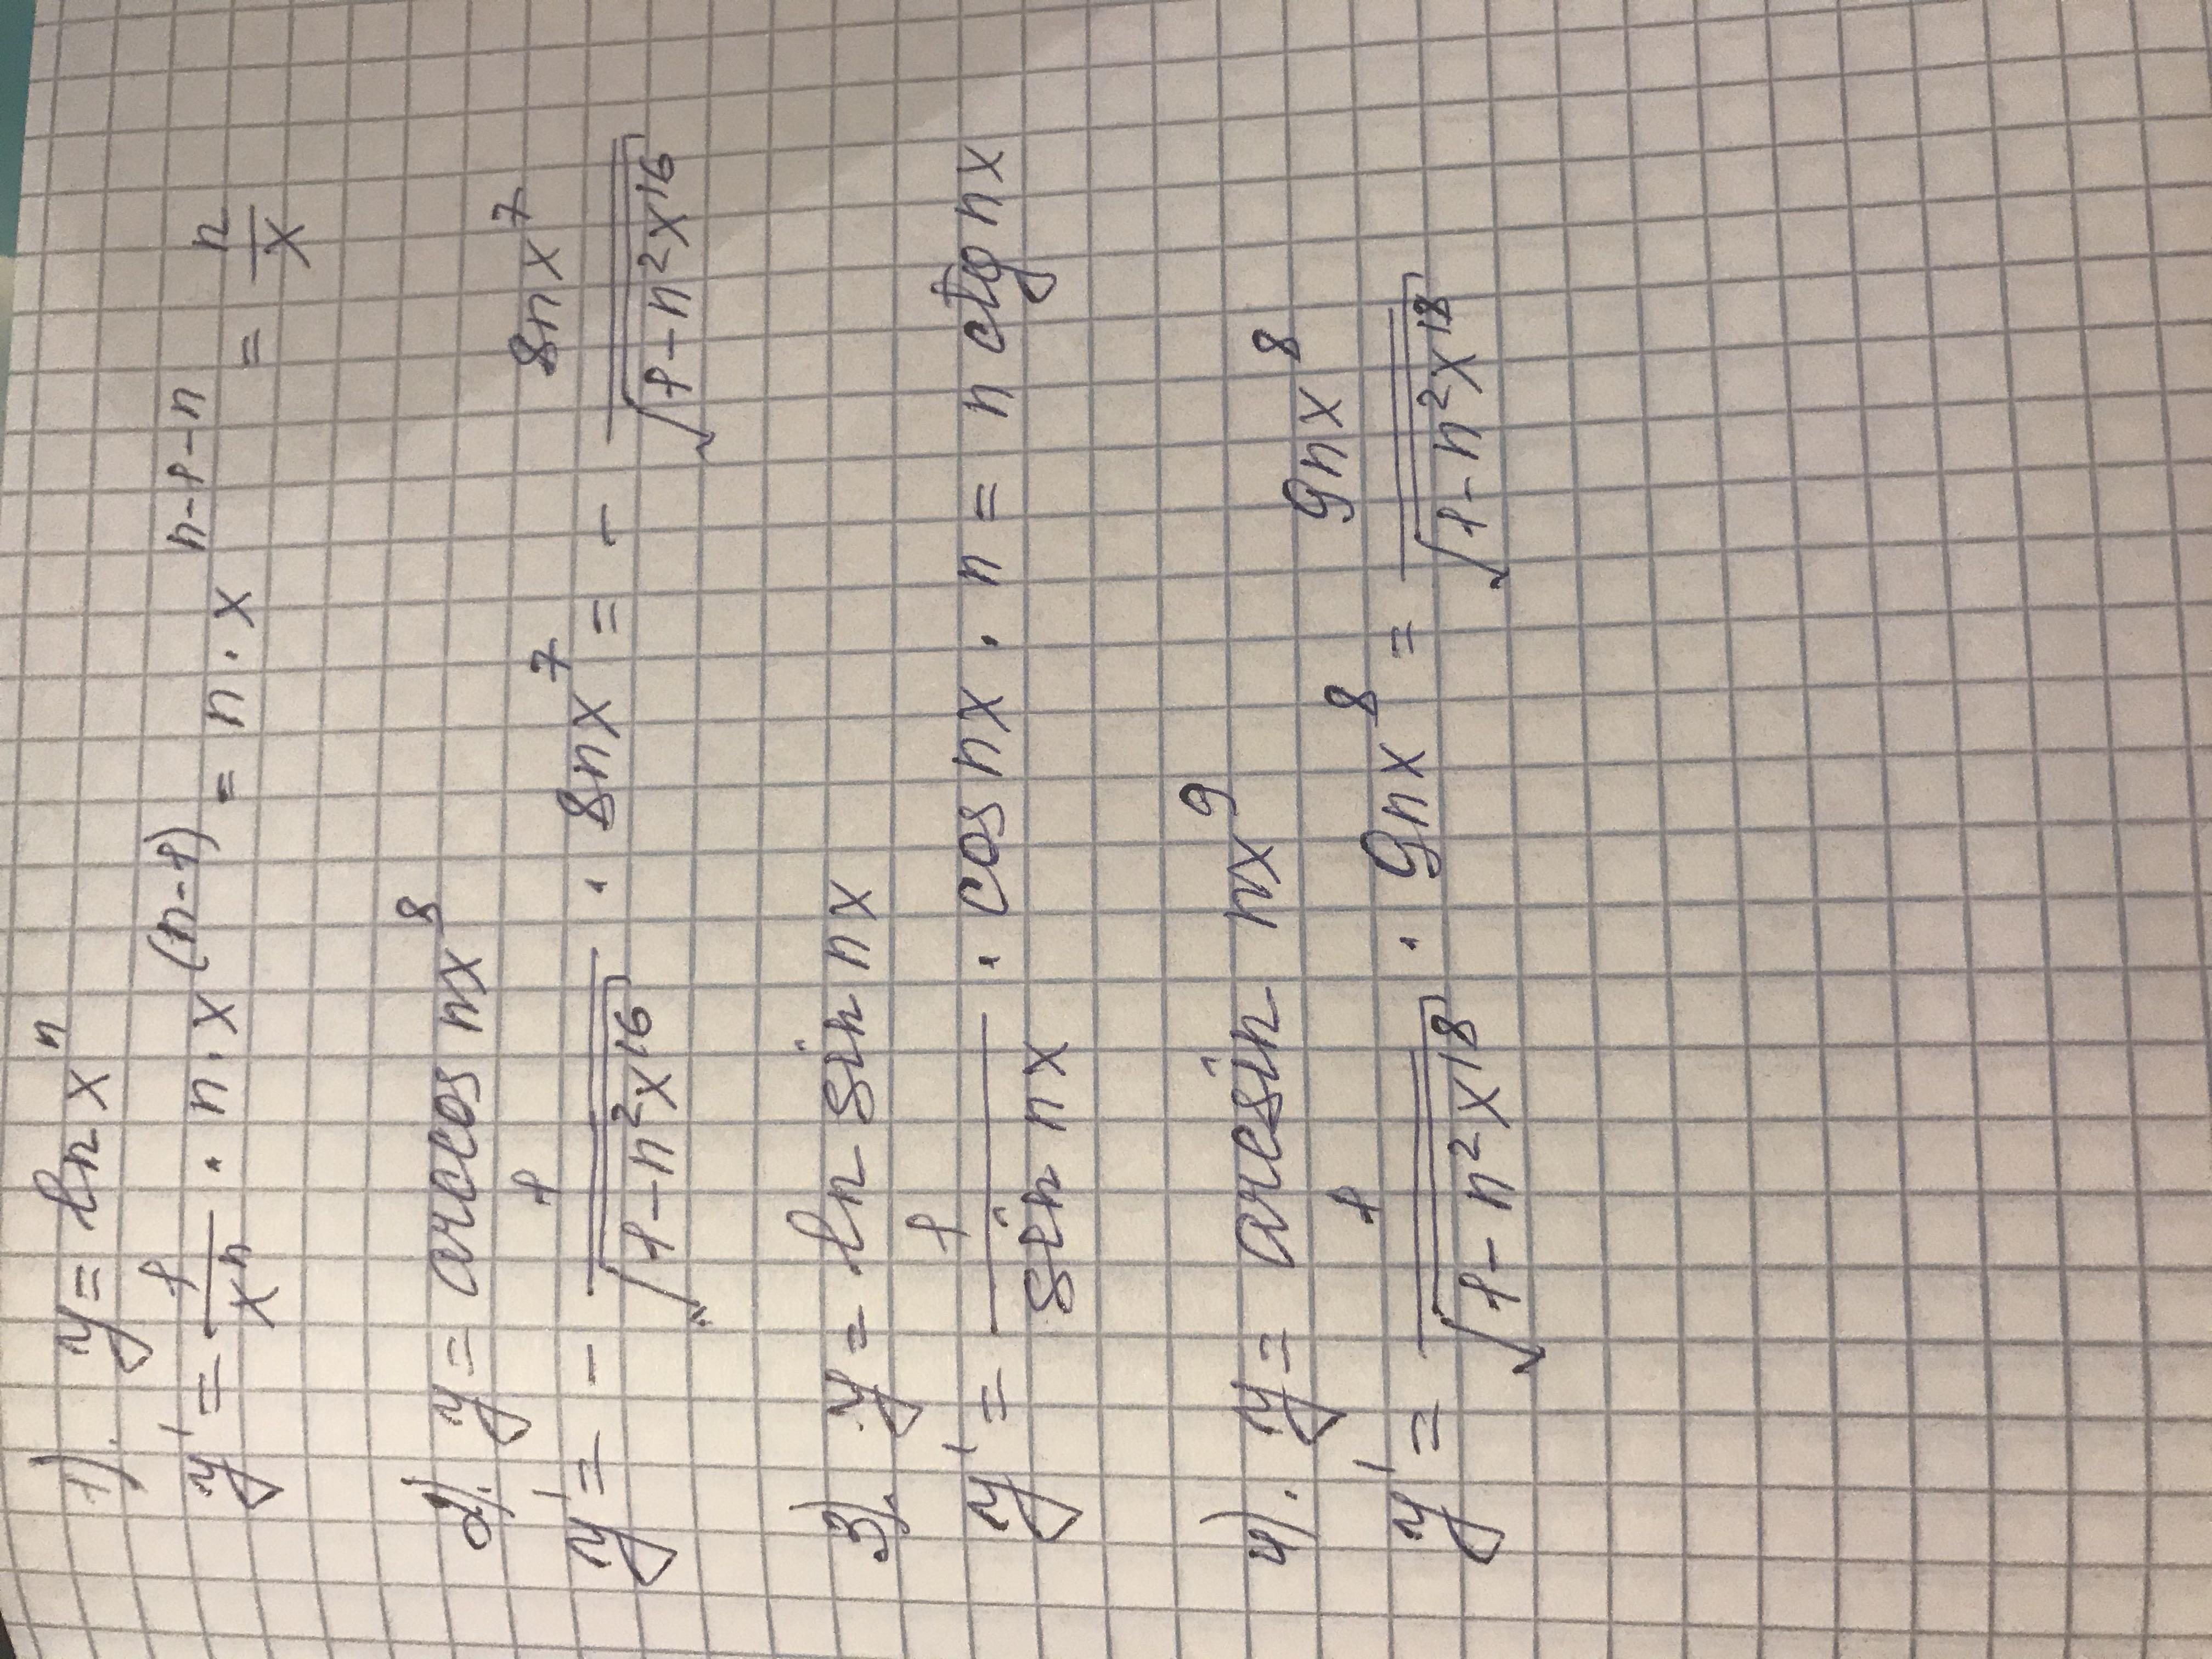 1). y = ln xⁿ
y' = 1/xⁿ · n · x^(n-1) = n · x^n-1-n = n/x
2). y = arccos nx⁸
y' = - 1/√(1-n²x¹⁶) · 8nx⁷ = - 8nx⁷/√(1-n²x¹⁶)
3). y = ln sin nx
y' = 1/sin nx · cos nx · n = n ctg nx
4). y = arcsin nx⁹
y' = 1/√(1-n²x¹⁸) · 9nx⁸ = 9nx⁸/√(1-n²x¹⁸)